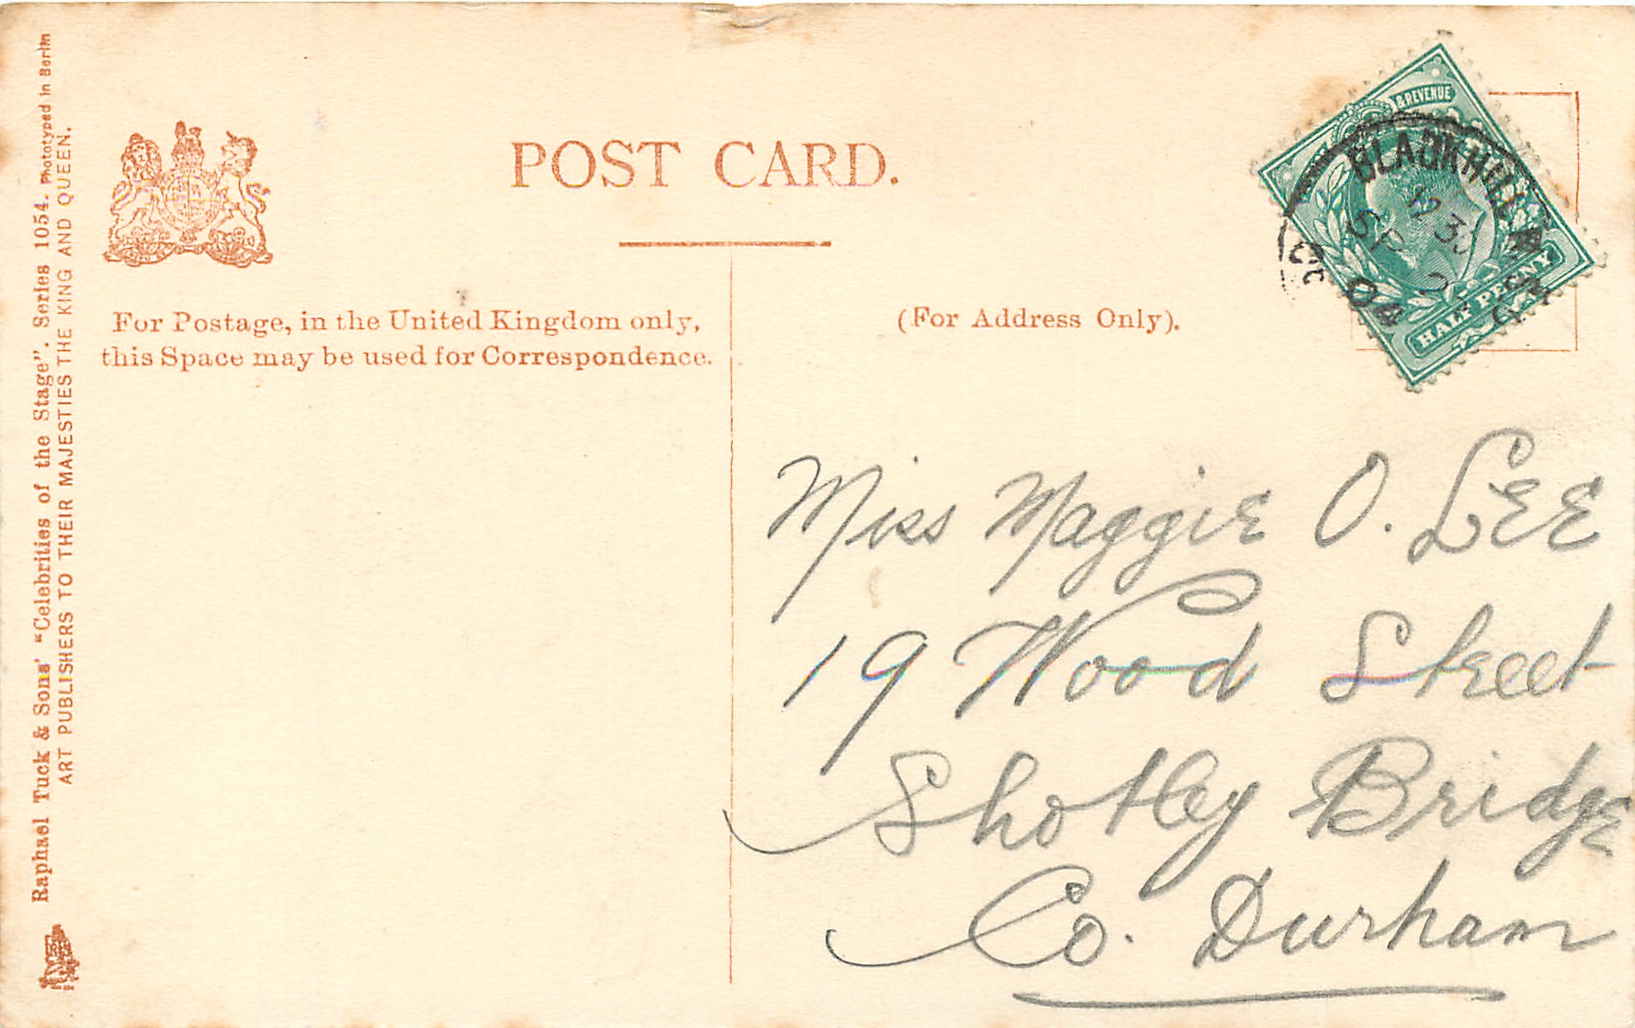 POST CARD.
For Postage, in the United Kingdom only,
this Space may be used for Correspondence.
(For Address Only).
Miss Maggie O. Lee
19 Wood Street
Shotley Bridge
Co. Durham
Raphael Tuck & Sons' "Celebrities of the Stage". Series 1054. Phototyped in Berlin
ART PUBLISHERS TO THEIR MAJESTIES THE KING AND QUEEN.
& REVENUE
HALF PENNY
BLACKHILL
SP
04